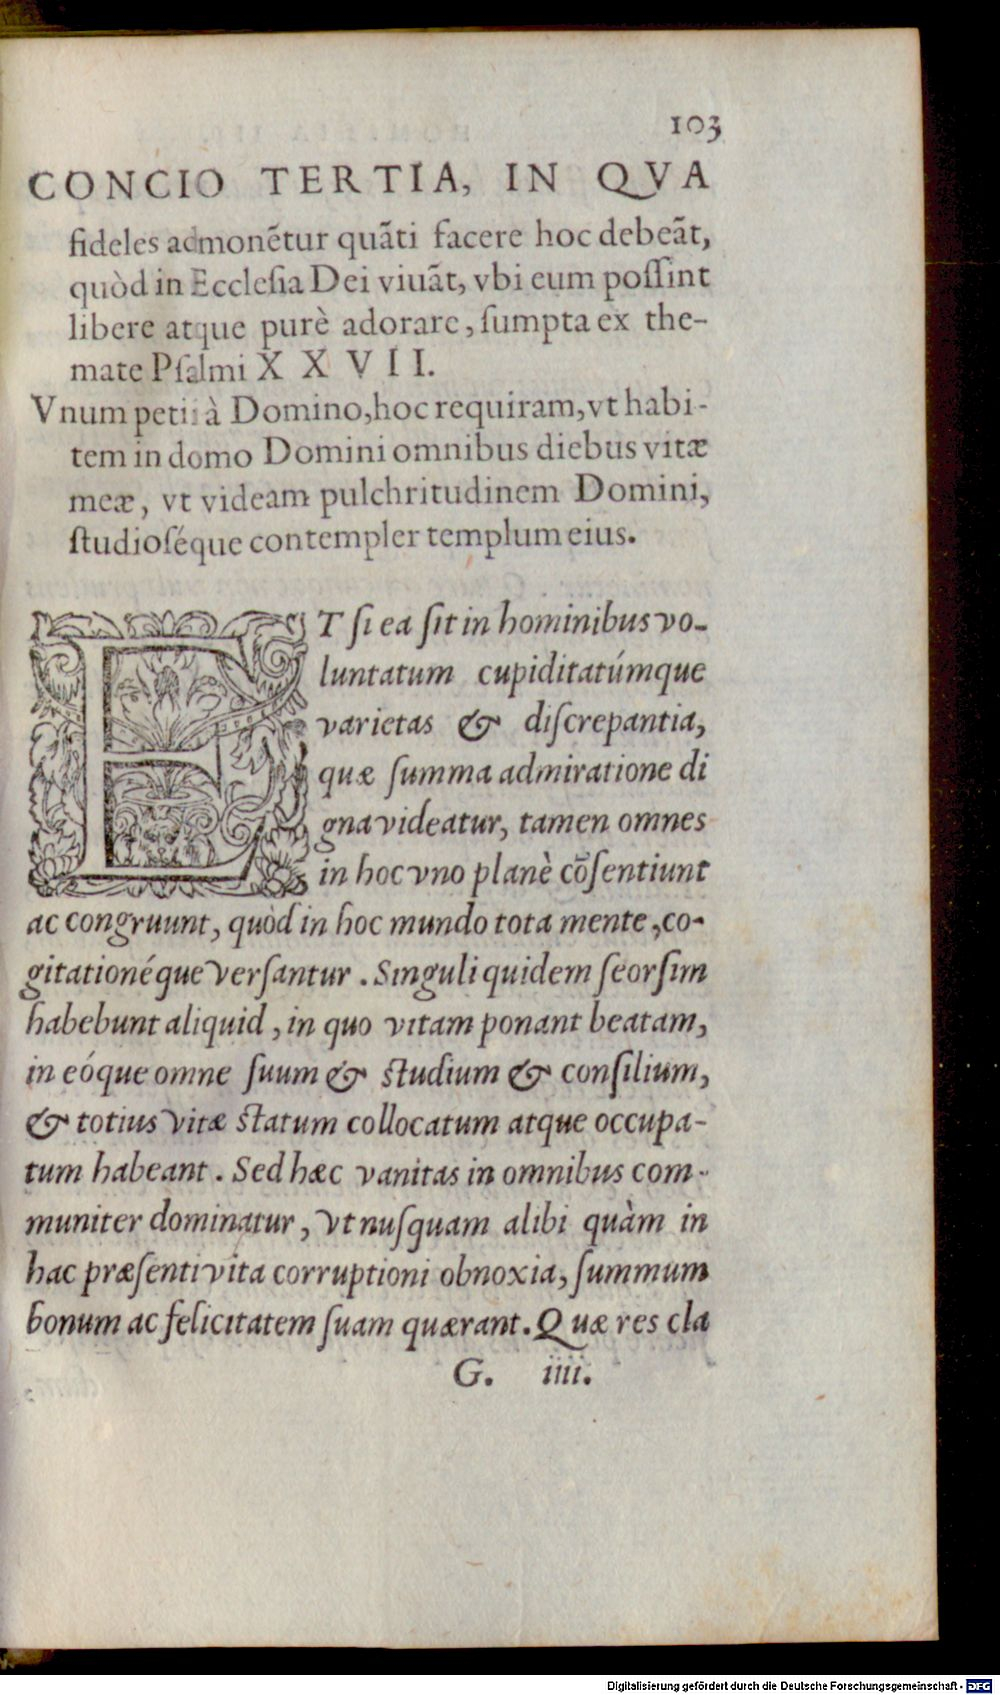 103
CONCIO TERTIA, IN QVA
fideles admonẽtur quãti facere hoc debeãt,
quòd in Ecclesia Dei viuãt, vbi eum poſſint
libere atque purè adorare, ſumpta ex the-
mate Pſalmi X X V I I.
Vnum petii à Domino, hoc requiram, vt habi-
tem in domo Domini omnibus diebus vitæ
meæ, vt videam pulchritudinem Domini,
ſtudioſéque contempler templum eius.
ET ſi ea ſit in hominibus vo-
luntatum cupiditatúmque
varietas & diſcrepantia,
quæ ſumma admiratione di
gna videatur, tamen omnes
in hoc vno planè cõſentiunt
ac congruunt, quòd in hoc mundo tota mente, co-
gitationéque verſantur. Singuli quidem ſeorſim
habebunt aliquid, in quo vitam ponant beatam,
in eóque omne ſuum & ſtudium & conſilium,
& totius vitæ ſtatum collocatum atque occupa-
tum habeant. Sed hæc vanitas in omnibus com-
muniter dominatur, vt nuſquam alibi quàm in
hac præſenti vita corruptioni obnoxia, ſummum
bonum ac felicitatem ſuam quærant. Quæ res cla
G. iiii.
Digitalisierung gefördert durch die Deutsche Forschungsgemeinschaft - DFG